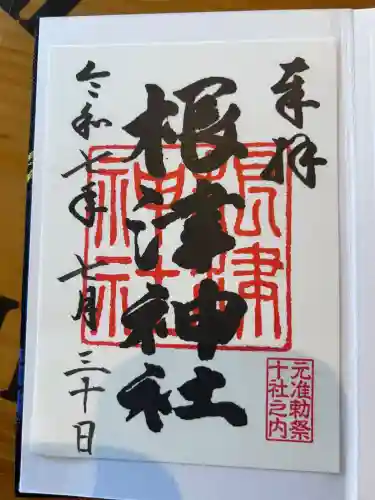 奉拝
根津神社
根津神社
元准勅祭
十社之内
令和七年 七月 三十日